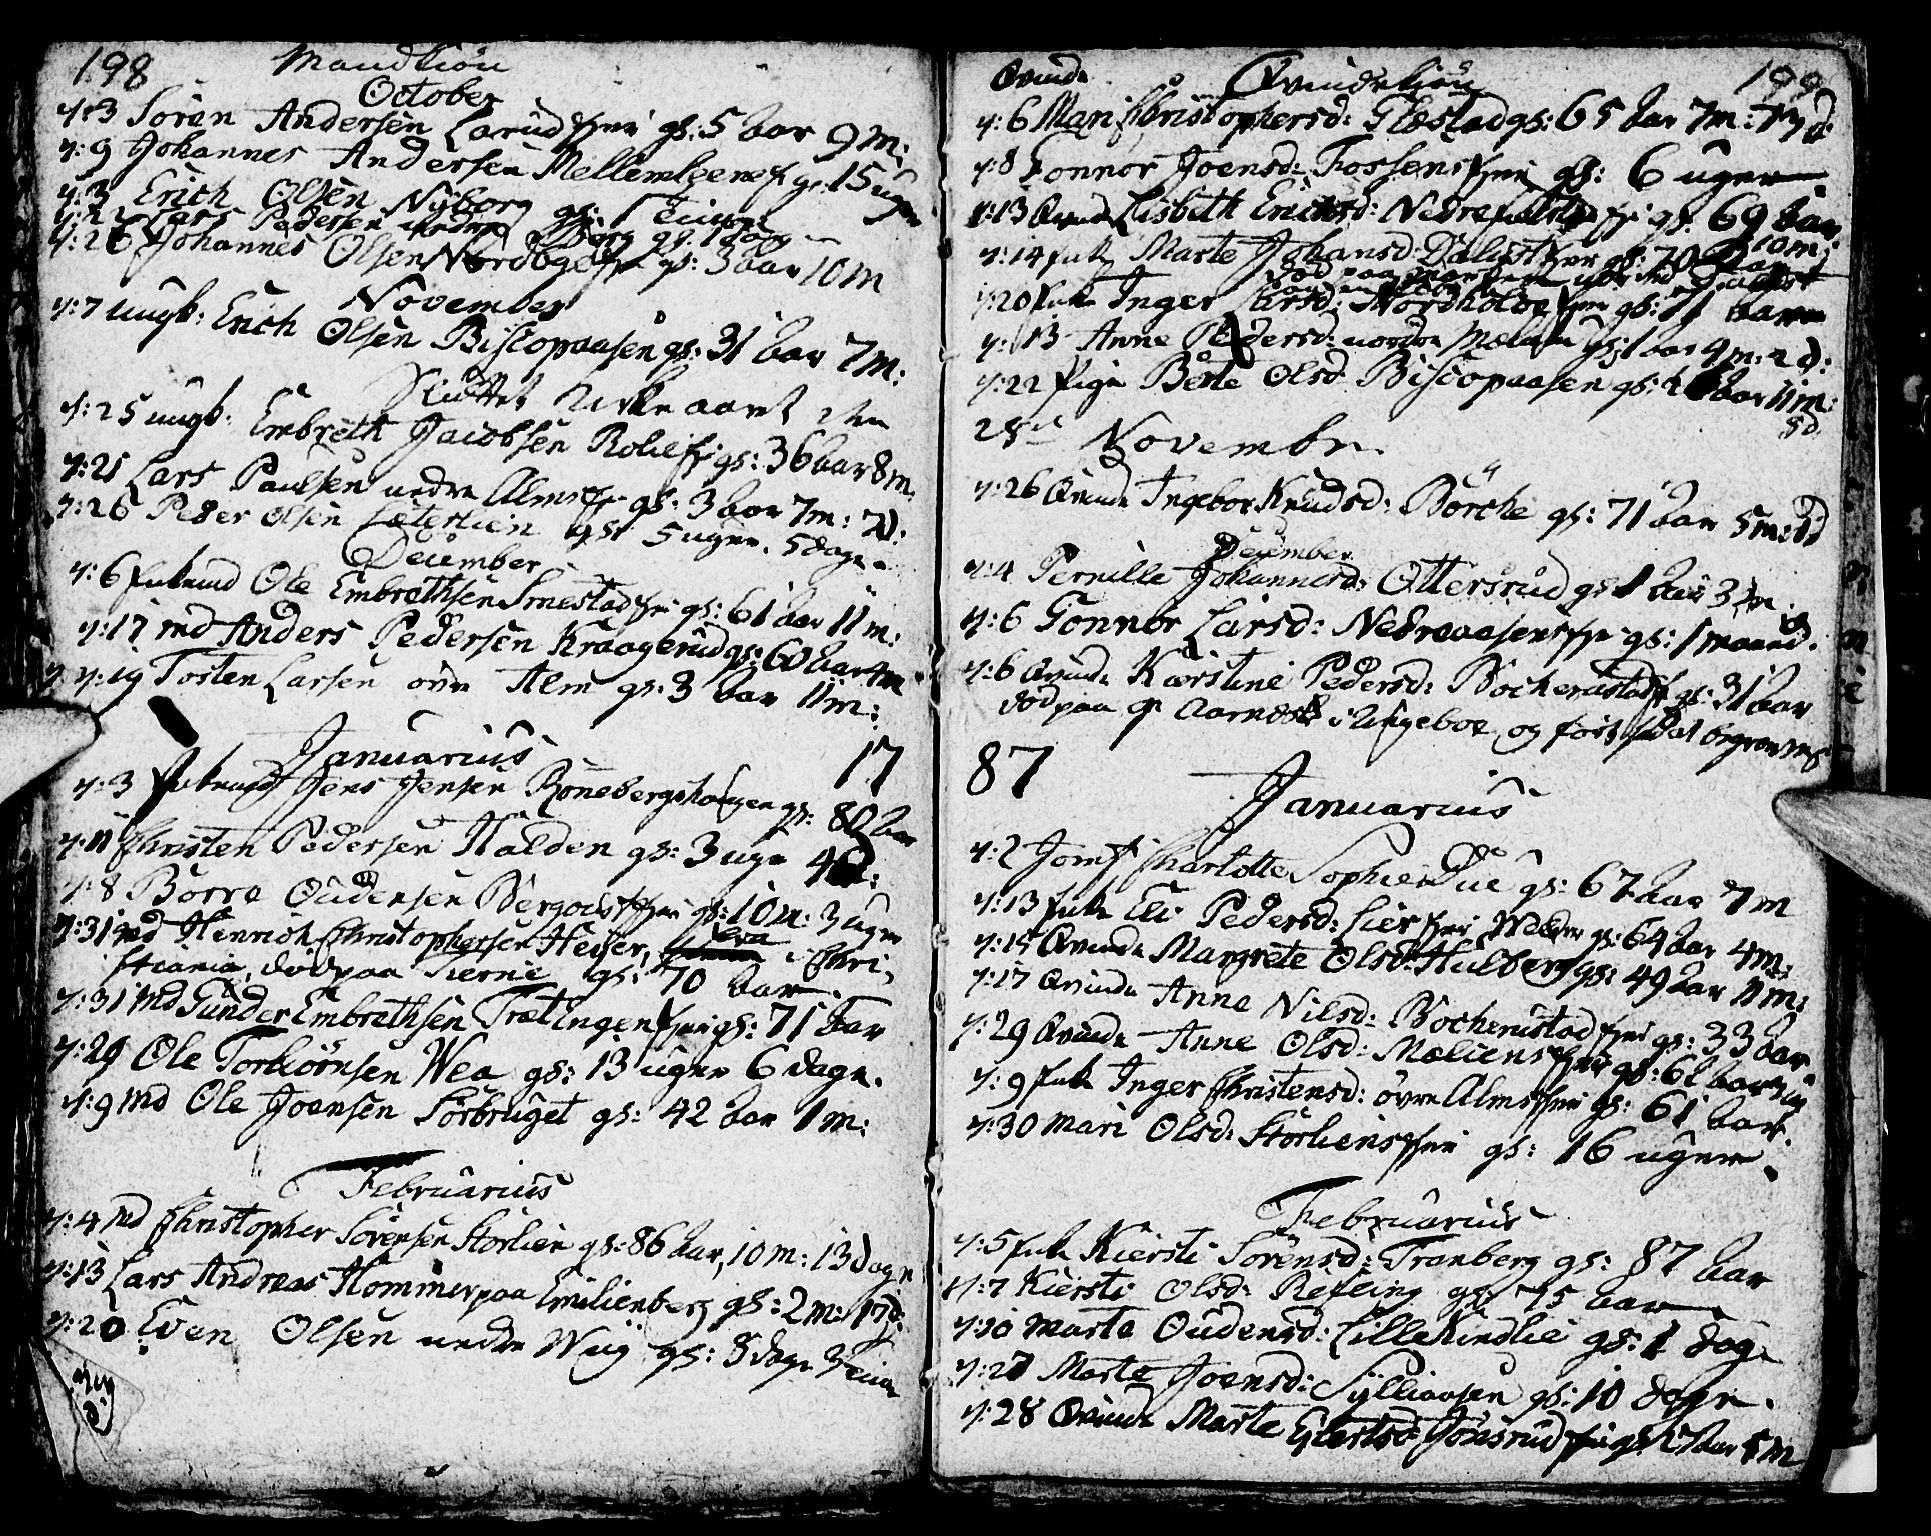 198 Mandkiön
October
d: 3 Sören Andersen Larudeje gl: 5 aar 9 m:
d: 9 Johannes Andersen Mellem gl: 15 uger
d: 3 Erich Olsen Nyborg gl: 1 time
d: 21 Lars Pedersen nedre gl. 1 dag
d: 26 Johannes Olsen Nordbye gl: 3 aar 10 M
November
d: 7 ungk: Erich Olsen Biscopaasen gl: 31 aar 7 m:
Sluttet Kirke aaret den
d: 25 ungk: Embreth Jacobsen Rolie gl: 36 aar 8 m
d: 21 Lars Paulsen nedre Alm gl: 3 aar 7 m: 7 d:
d: 26 Peder Olsen Sæterlien gl 5 uger. 5 dage
December
d: 6 Enkemd Ole Embrethsen Smestad gl: 61 aar 11 m:
d: 17 md Anders Pedersen Kraagerud gl: 60 aar 4 m
d: 19 Tosten Larsen övre Alm gl: 3 aar 11 m:
Januarius 17
d: 3 Enkemd Jens Jensen Rönebergshaugen gl: 80 aar
d: 11 Christen Pedersen Halden gl: 3 uger 4 d:
d: 8 Börre Oudensen Bergqvist gl: 10 m: 3 uger
d: 31 md Henrich Christophersen Heyer, i Chri,
stiania, död paa gl: 70 aar
d: 31 md Gunder Embrethsen Trætengen gl: 71 aar
d: 29 Ole Torkiörnsen Wea gl: 13 uger 6 dage.
d: 9 md Ole Joensen Sörbruget gl: 42 aar 1 m:
Februarius
d: 4 md Christopher Sörensen Storlien gl: 86 aar, 10 m: 13 dage
d: 13 Lars Andreas Hommer paa Emilienberg gl: 2 m: 17 d:
d: 20 Even Olsen nedre Wiig gl: 8 dage 3
Qvinde Qvindekiön 199
d: 6 Mari Christophersd: Glæstad gl: 65 aar 7 m: 17 d:
d: 8 Gonnor Joensd: Fossens gl: 6 uger
d: 13 Qvinde Lisbeth Erichsd: Nedre gl: 69 aar
10 m:
d: 14 Enke Marte Johansd: Dalust gl: 70 aar
d: 20 Enke Inger Larsd: Nordholde gl: 71 aar
d: 13 Anne Pedersd: nordre Mælum gl: 1 aar 9 m: 2 d:
d: 22 Pige Berte Olsd Biscopaasen gl: aar 11 m:
8 d.
28de Novembr.
d: 26 Qvinde Ingebor Knudsd: Börche gl: 71 aar 5 m: 1 d
December
d: 4 Pernille Johannesd: Ottersrud gl 1 aar 3 m
d: 6 Gonnor Larsd: Nedreaasens gl: 1 maaned.
d: 6 Qvinde Kierstine Pedersd: Bochenstad gl: 31 aar
död paa Aarnæs i Ringeboe og först begraves
87
Januarius
d: 2 Jomf Charlotte Sophie Due gl: 67 aar 7 m
d: 13 Enke Eli Pedersd: Lier gl: 64 aar 4 m:
d: 15 Qvinde Margrete Olsd: Hulberg gl: 49 aar 11 m:
d: 17 Qvinde Anne Nilsd: Bochenstad gl: 33 aar
d: 29 Qvinde Anne Olsd: Mæliens gl: 61 aar
d: 9 Enke Inger Christensd: övre Alms gl: 61 aar.
d: 30 Mari Olsd: Storliens gl: 16 uger
Februarius
d: 5 Enke Kiersti Sörensd: Tranberg gl: 87 aar
d: 7 Kiersti Olsd: Refling gl: 75 aar
d: 10 Marte Oudensd: Lille Kindlie gl: 1 dag
d: 27 Marte Joensd: Sylliaasen gl: 10 dage.
d: 28 Qvinde Marte Gertsd Jönsrud gl: 27 aar 5 m